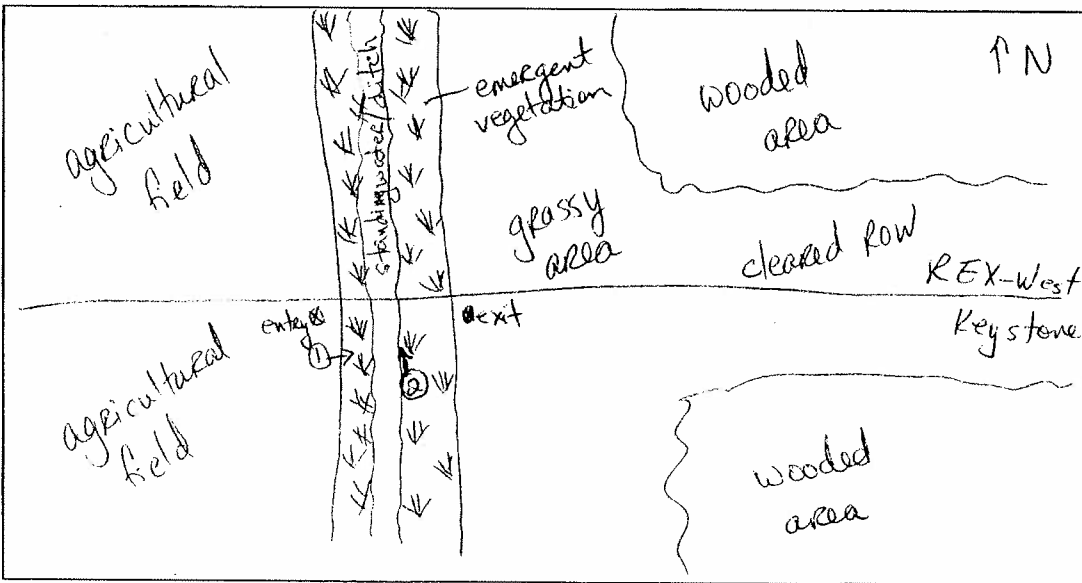 agricultural
field
standing water/ditch
emergent
vegetation
wooded
area
↑ N
grassy
area
cleared ROW
REX-West
Keystone
entry
exit
1
2
agricultural
field
wooded
area